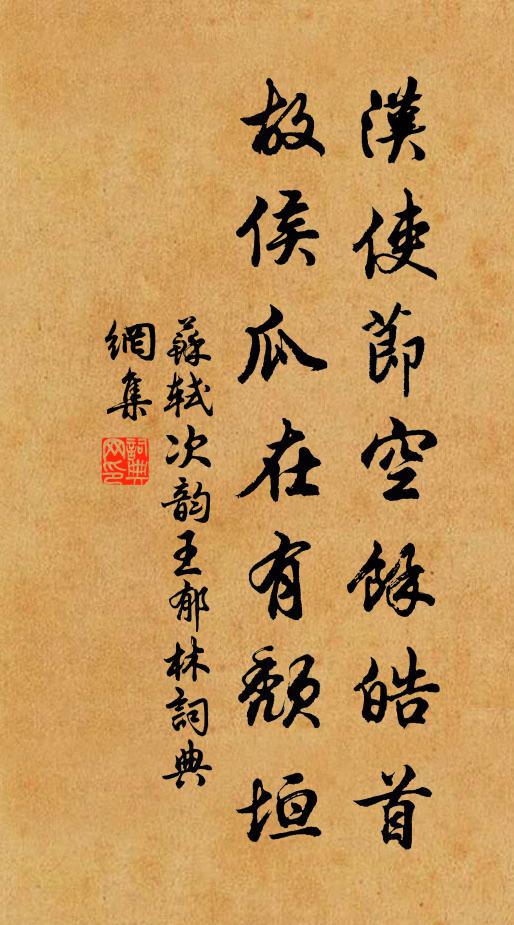 漢使節空餘皓首
故侯瓜在有頹垣
蘇軾次韵王郁林詞典
網集
詞典網印